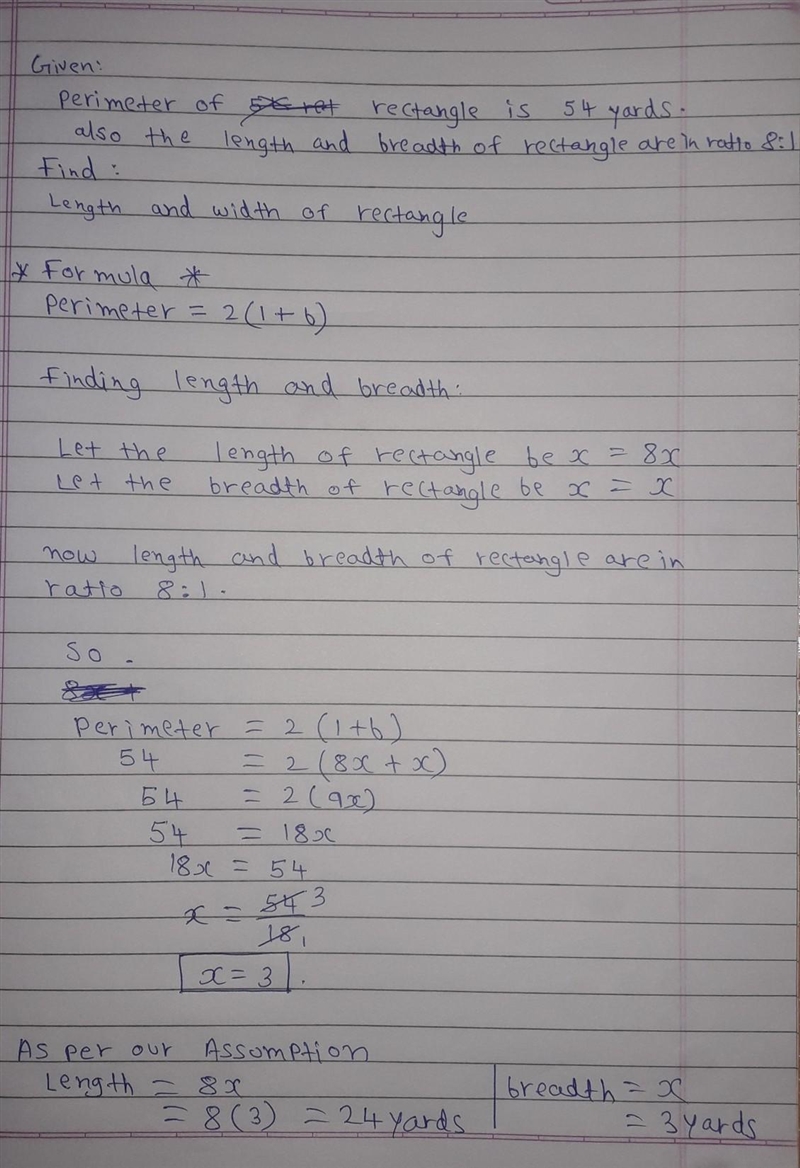 Given:
Perimeter of rectangle is 54 yards.
also the length and breadth of rectangle are in ratio 8:1
Find:
Length and width of rectangle
* Formula *
Perimeter = 2(l+b)
Finding length and breadth:
Let the length of rectangle be x = 8x
Let the breadth of rectangle be x = x
now length and breadth of rectangle are in
ratio 8:1.
So.
Perimeter = 2(l+b)
54 = 2(8x+x)
54 = 2(9x)
54 = 18x
18x = 54
x = 54 3
18 1
x = 3.
As per our Assumption
Length = 8x
= 8(3) = 24 yards
breadth = x
= 3 yards